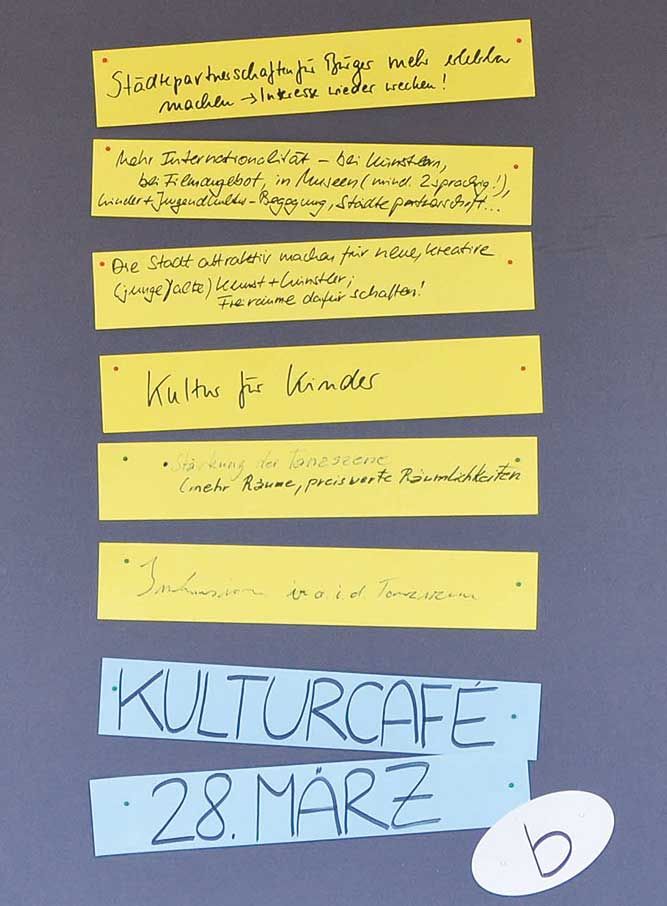 Städtepartnerschaften für Bürger mehr erlebbar
machen → Interesse wieder wecken!
Mehr Internationalität – bei Künstlern,
bei Filmangebot, in Museen (mind. 2 sprachig!),
Kinder + Jugendkultur – Begegnung, Städtepartnerschaft...
Die Stadt attraktiv machen für neue, kreative
(junge/alte) Kunst + Künstler;
Freiräume dafür schaffen!
Kultur für Kinder
• Stärkung der Tanzszene
(mehr Räume, preiswerte Räumlichkeiten
Inklusion i.d. Tanzszene
KULTURCAFÉ
28. MÄRZ
b